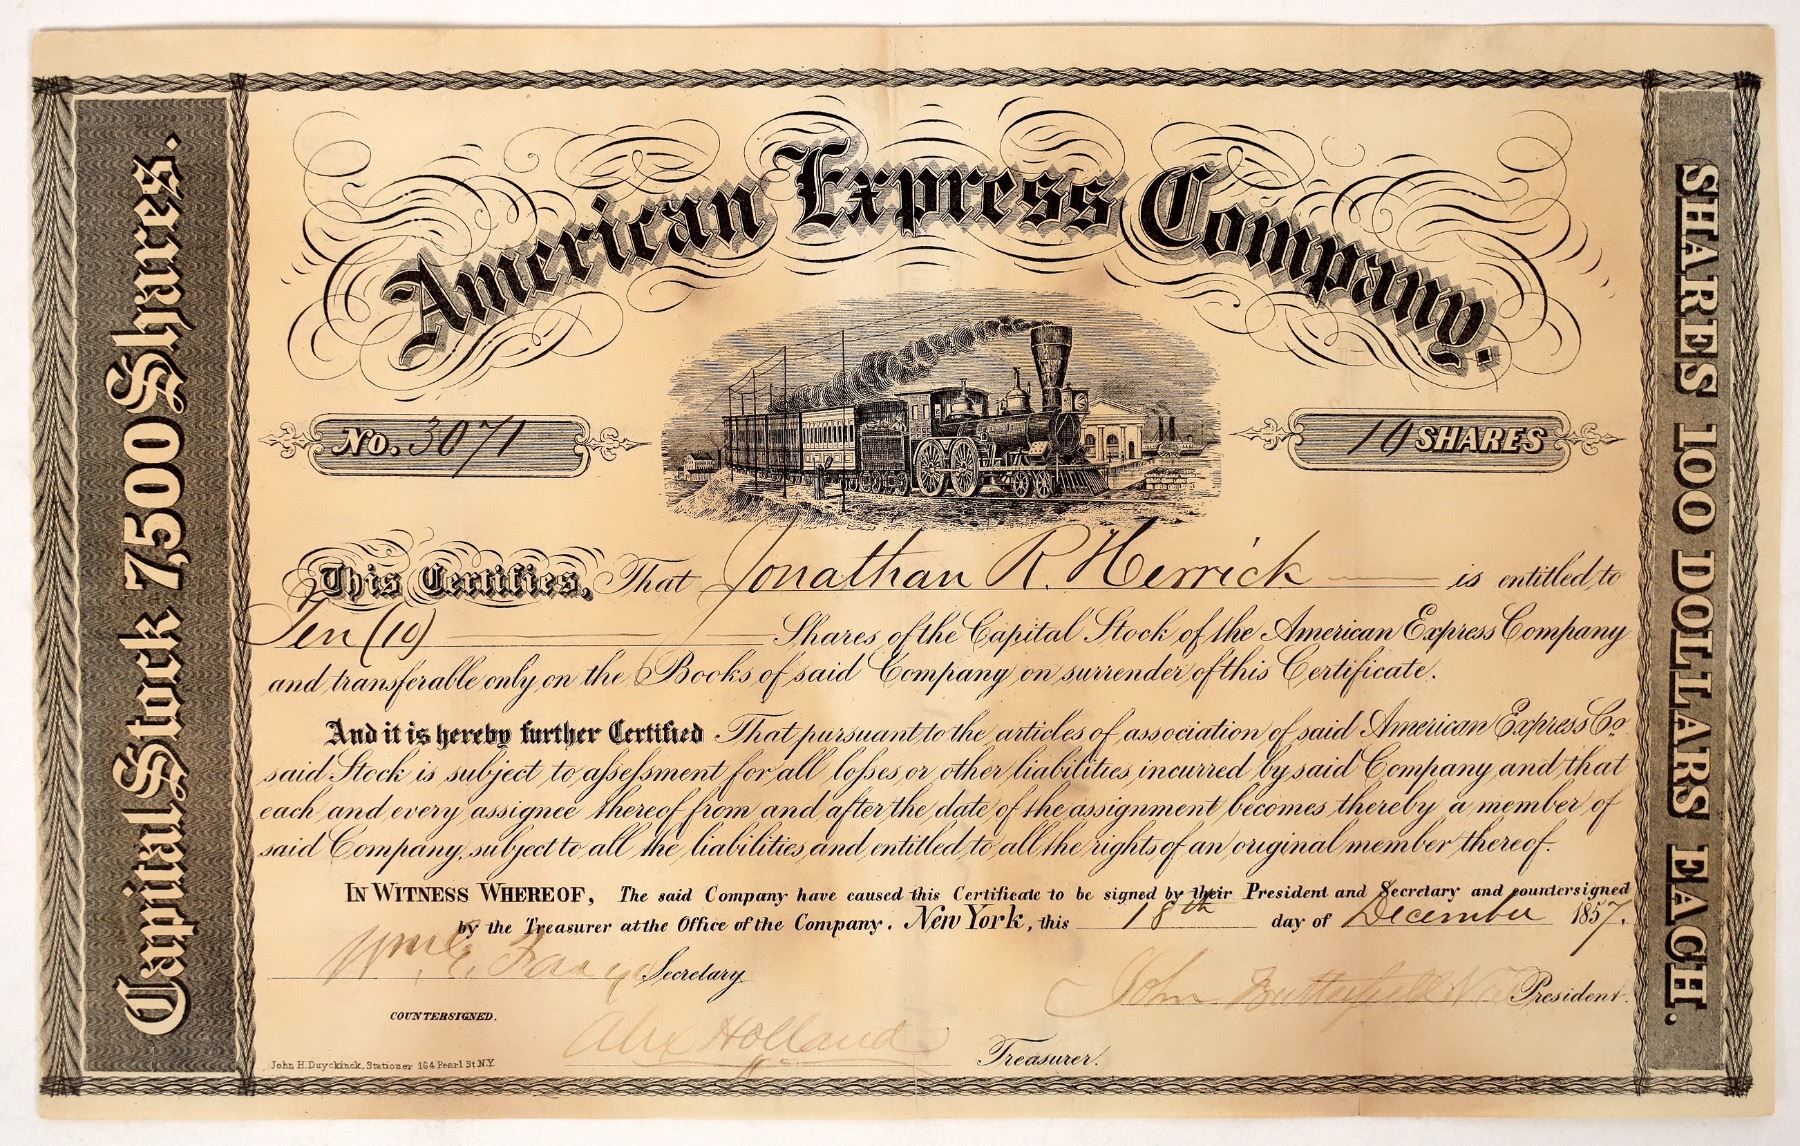 Capital Stock 7,500 Shares.
American Express Company.
No. 3071
10 SHARES
This Certifies, That Jonathan R. Herrick is entitled to
Ten (10) Shares of the Capital Stock of the American Express Company
and transferable only on the Books of said Company on surrender of this Certificate.
And it is hereby further Certified That pursuant to the articles of association of said American Express Co.
said Stock is subject to assessment for all losses or other liabilities incurred by said Company, and that
each and every assignee thereof from and after the date of the assignment becomes thereby a member of
said Company, subject to all the liabilities and entitled to all the rights of an original member thereof.
IN WITNESS WHEREOF, The said Company have caused this Certificate to be signed by their President and Secretary and countersigned
by the Treasurer at the Office of the Company. New York, this 18th day of December 1857.
Wm. G. Fargo Secretary
John Butterfield President.
COUNTERSIGNED.
Alex Holland Treasurer.
John H. Duyckinck, Stationer 164 Pearl St N.Y.
SHARES 100 DOLLARS EACH.